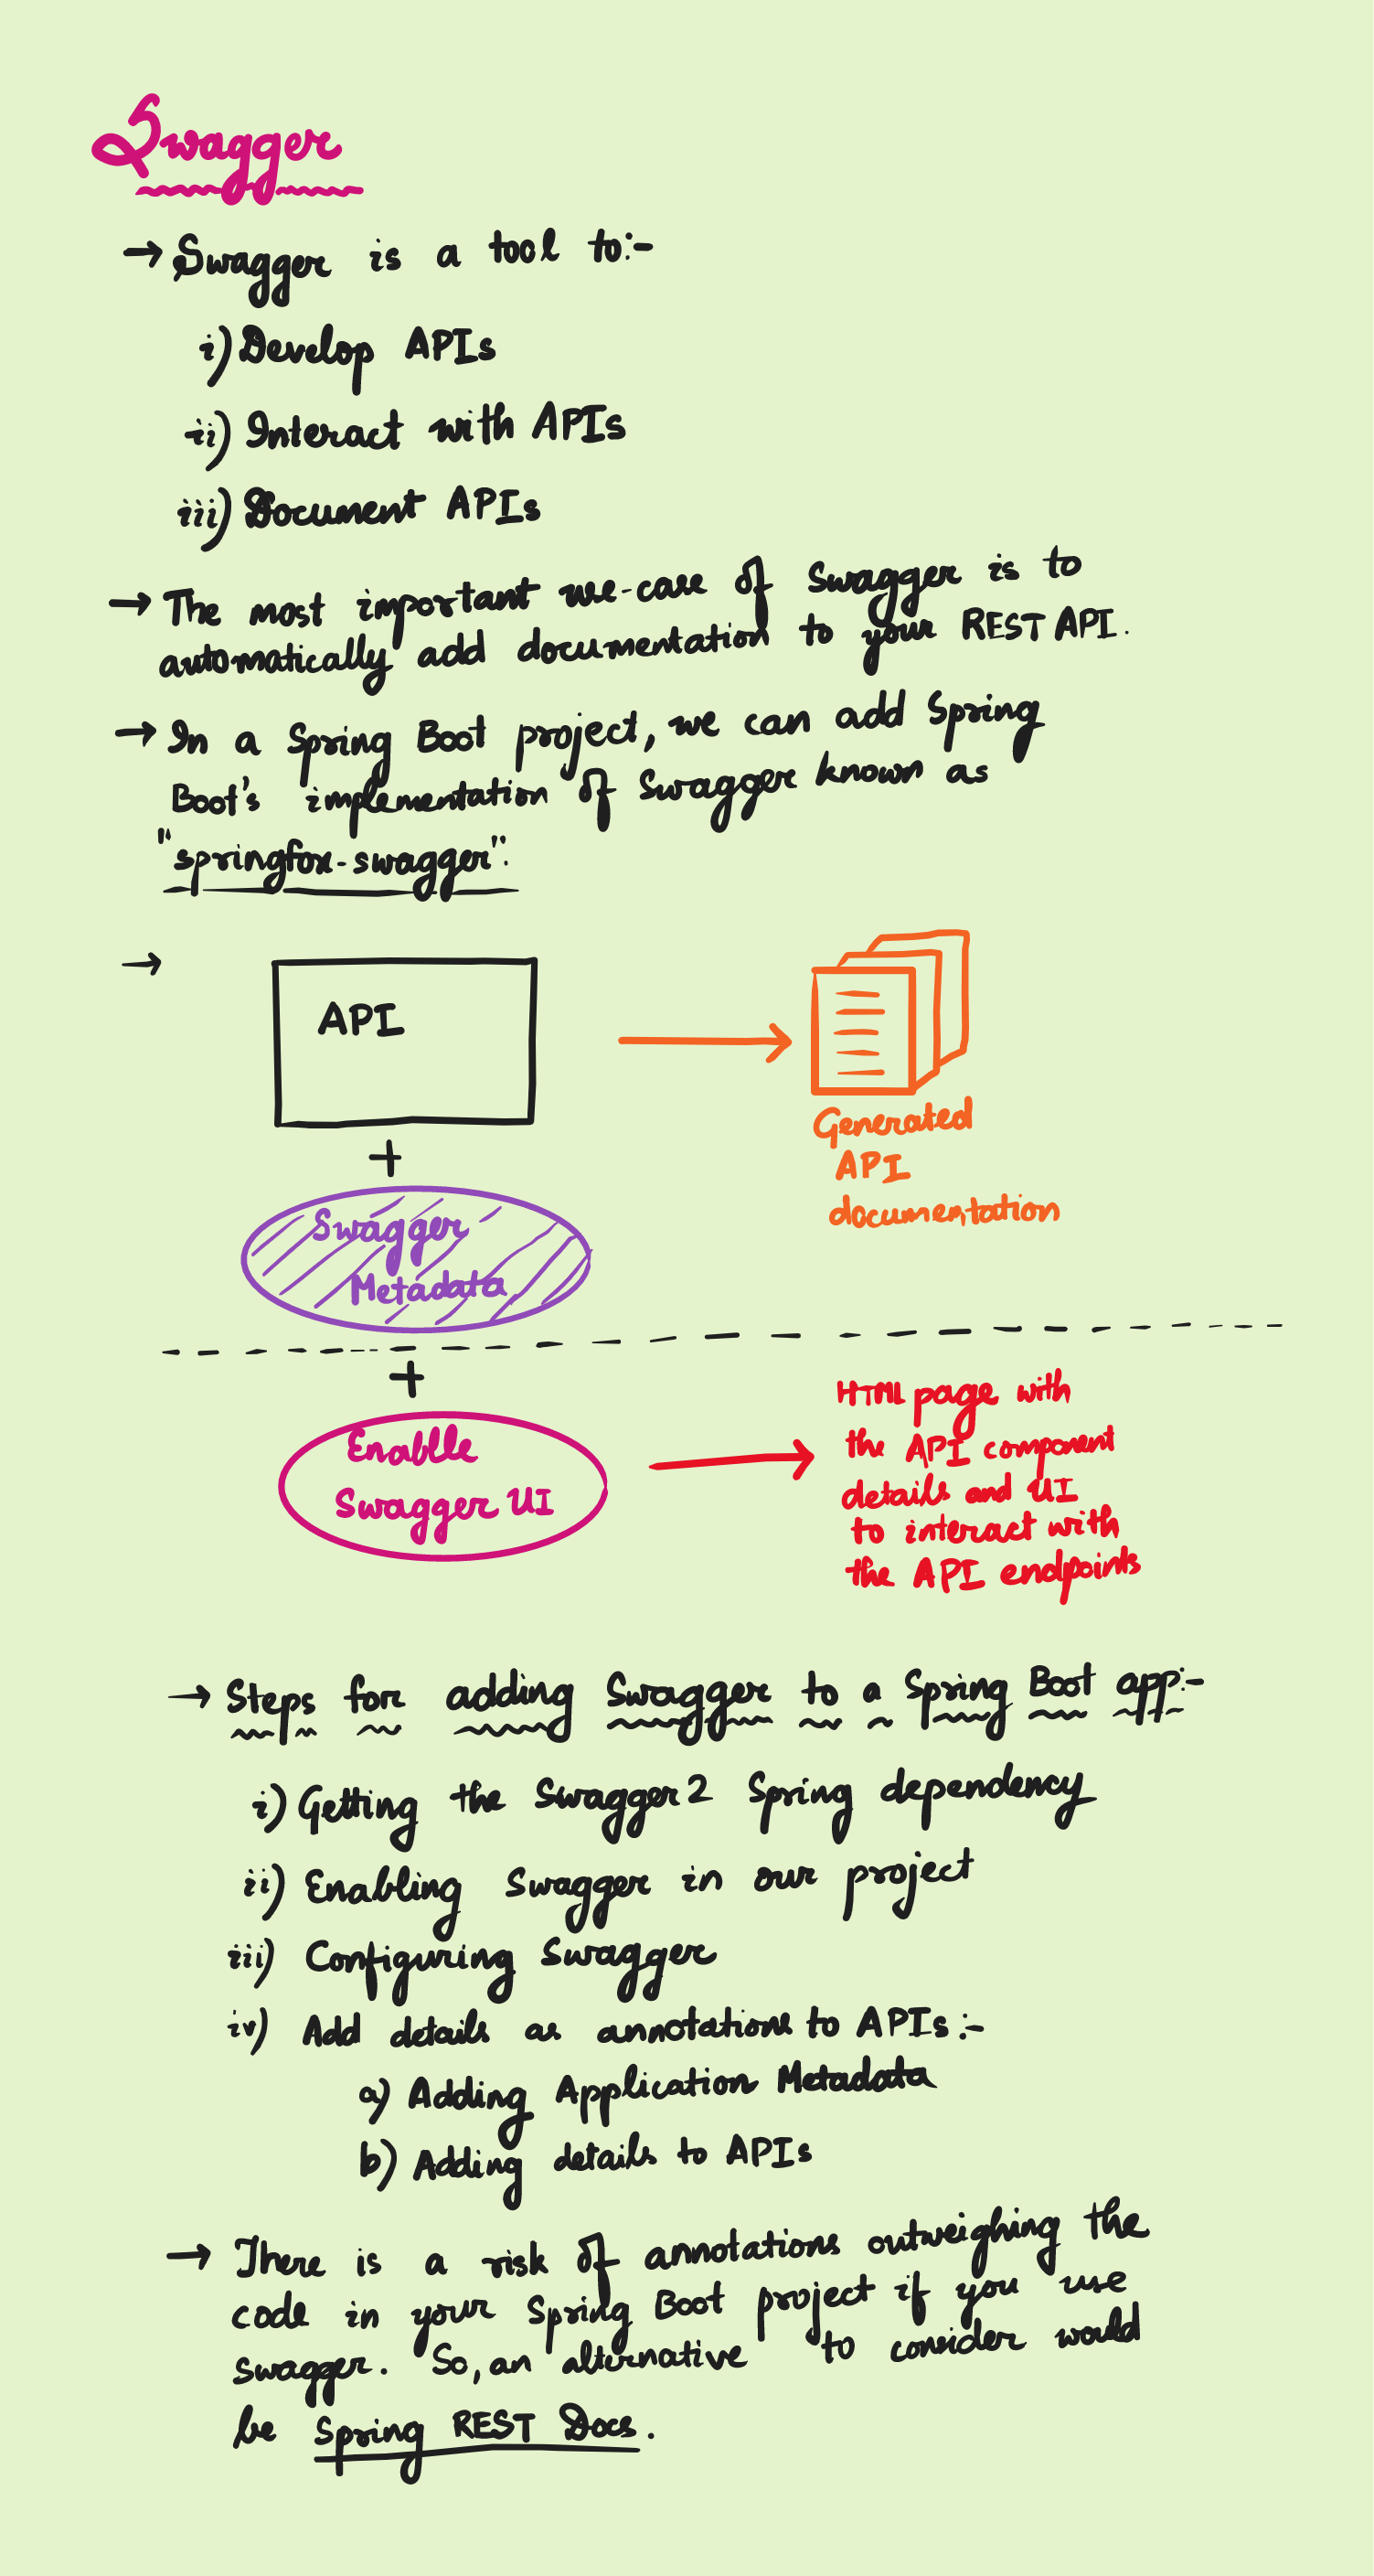 Swagger
→ Swagger is a tool to:-
i) Develop APIs
ii) Interact with APIs
iii) Document APIs
→ The most important use-case of Swagger is to
automatically add documentation to your REST API.
→ In a Spring Boot project, we can add Spring
Boot's implementation of Swagger known as
"springfox-swagger".
→
API
+
Swagger
Metadata
Generated
API
documentation
+
Enable
Swagger UI
HTML page with
the API component
details and UI
to interact with
the API endpoints
→ Steps for adding Swagger to a Spring Boot app:-
i) Getting the Swagger2 Spring dependency
ii) Enabling Swagger in our project
iii) Configuring Swagger
iv) Add details as annotations to APIs:-
a) Adding Application Metadata
b) Adding details to APIs
→ There is a risk of annotations outweighing the
code in your Spring Boot project if you use
swagger. So, an alternative to consider would
be Spring REST Docs.